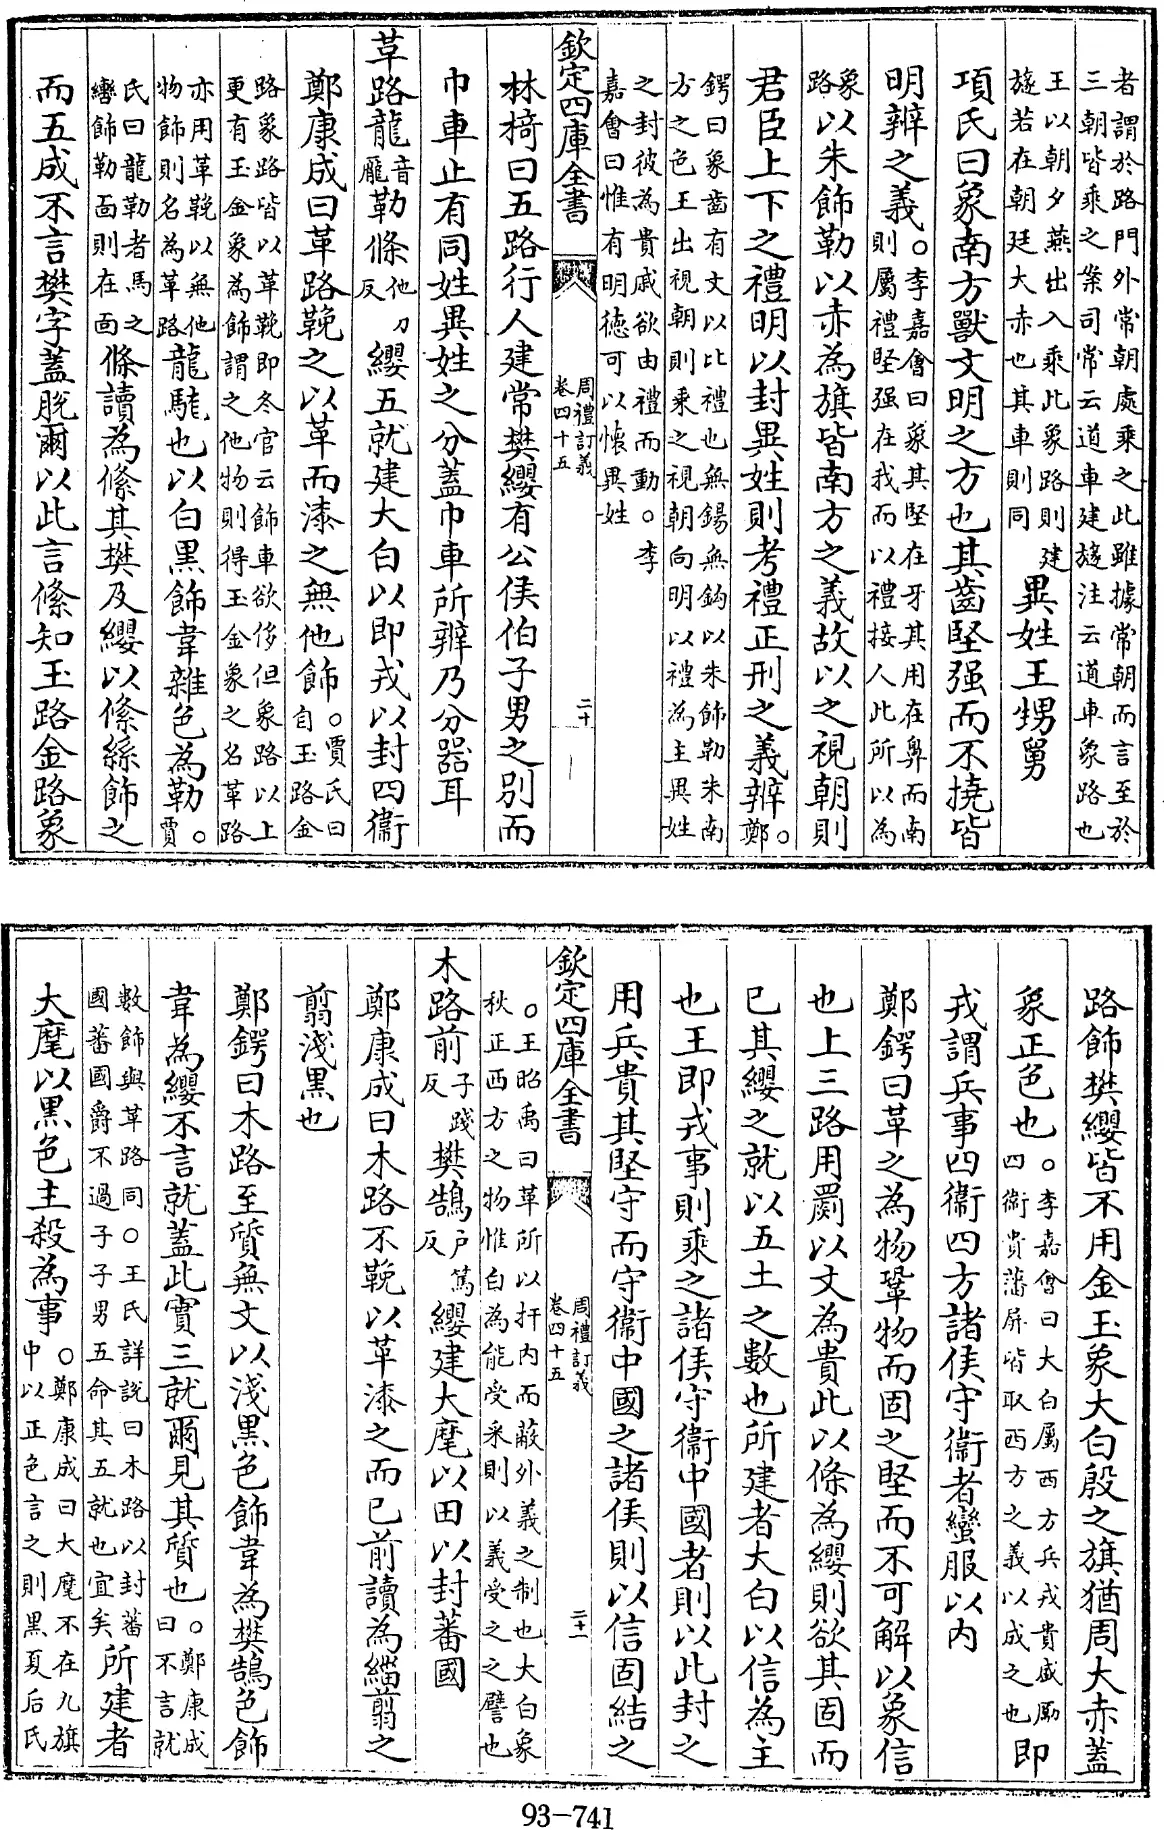 者謂於路門外常朝處乘之此雖據常朝而言至於
三朝皆乘之案司常云道車建旞注云道車象路也
王以朝夕燕出入乘此象路則建
旞若在朝廷大赤也其車則同
異姓王甥舅
項氏曰象南方獸文明之方也其齒堅强而不撓皆
明辨之義
○李嘉會曰象其堅在牙其用在鼻而南
則屬禮堅强在我而以禮接人此所以為
象
路
以朱飾勒以赤為旗皆南方之義故以之視朝則
君臣上下之禮明以封異姓則考禮正刑之義辨○
鄭
鍔曰象齒有文以比禮也無鍚無鈎以朱飾勒朱南
方之色王出視朝則乘之視朝向明以禮為主異姓
之封彼為貴戚欲由禮而動○李
嘉會曰惟有明徳可以懐異姓
欽定四庫全書
周禮訂義
卷四十五
二十
林椅曰五路行人建常樊纓有公侯伯子男之别而
巾車止有同姓異姓之分蓋巾車所辨乃分器耳
革路龍
音
厖
勒條
他刀
反
纓五就建大白以即戎以封四衞
鄭康成曰革路鞔之以革而漆之無他飾
○賈氏曰
自玉路金
路象路皆以革鞔即冬官云飾車欲侈但象路以上
更有玉金象為飾謂之他物則得玉金象之名革路
亦用革鞔以無他
物飾則名為革路
龍駹也以白黑飾韋雜色為勒
○
賈
氏曰龍勒者馬之
轡飾勒面則在面
條讀為絛其樊及纓以絛絲飾之
而五成不言樊字蓋脱爾以此言絛知玉路金路象
路飾樊纓皆不用金玉象大白殷之旗猶周大赤蓋
象正色也
○李嘉會曰大白屬西方兵戎貴威勵
四衞貴藩屏皆取西方之義以成之也
即
戎謂兵事四衞四方諸侯守衞者蠻服以内
鄭鍔曰革之為物鞏物而固之堅而不可解以象信
也上三路用罽以文為貴此以條為纓則欲其固而
已其纓之就以五土之數也所建者大白以信為主
也王即戎事則乘之諸侯守衞中國者則以此封之
用兵貴其堅守而守衞中國之諸侯則以信固結之
欽定四庫全書
周禮訂義
卷四十五
二十一
○王昭禹曰革所以扞内而蔽外義之制也大白象
秋正西方之物惟白為能受采則以義受之之譬也
木路前
子踐
反
樊鵠
戸篤
反
纓建大麾以田以封蕃國
鄭康成曰木路不鞔以革漆之而已前讀為緇翦之
翦淺黑也
鄭鍔曰木路至質無文以淺黑色飾韋為樊鵠色飾
韋為纓不言就蓋此實三就爾見其質也
○鄭康成
曰不言就
數飾與革路同○王氏詳説曰木路以封蕃
國蕃國爵不過子子男五命其五就也宜矣
所建者
大麾以黑色主殺為事
○鄭康成曰大麾不在九旗
中以正色言之則黑夏后氏
93-741